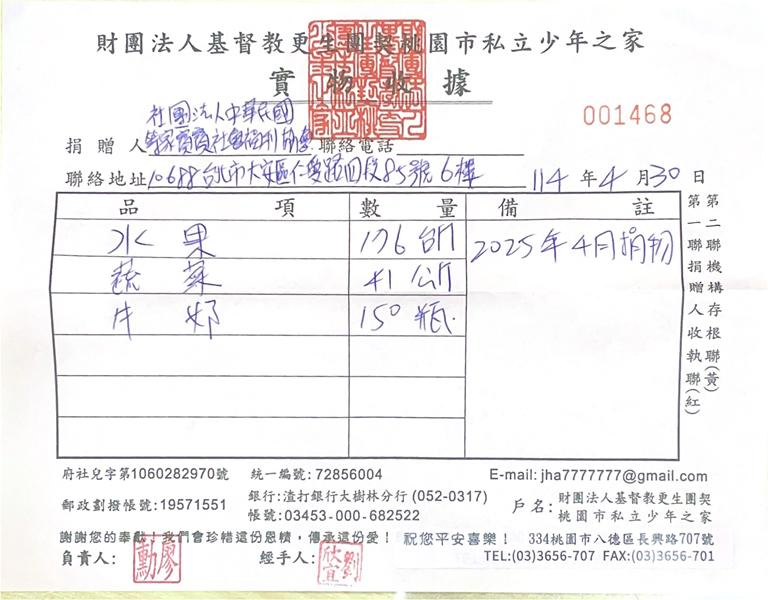 財團法人基督教更生團契桃園市私立少年之家
實物收據
001468
捐贈人 社團法人中華民國
等家寶寶社會福利協會 聯絡電話
聯絡地址 10688台北市大安區仁愛路四段85號6樓 114年4月30日
品項 數量 備註
水果 176台斤 2025年4月捐物
蔬菜 41公斤
牛奶 150瓶
第一聯捐贈人收執聯(紅)
第二聯機構存根聯(黃)
府社兒字第1060282970號 統一編號:72856004 E-mail: jha7777777@gmail.com
郵政劃撥帳號:19571551 銀行:渣打銀行大樹林分行 (052-0317)
帳號:03453-000-682522
戶名: 財團法人基督教更生團契
桃園市私立少年之家
謝謝您的奉獻!我們會珍惜這份恩情,傳承這份愛! 祝您平安喜樂! 334桃園市八德區長興路707號
負責人: 廖勳 經手人: 劉欣宜 TEL:(03)3656-707 FAX:(03)3656-701